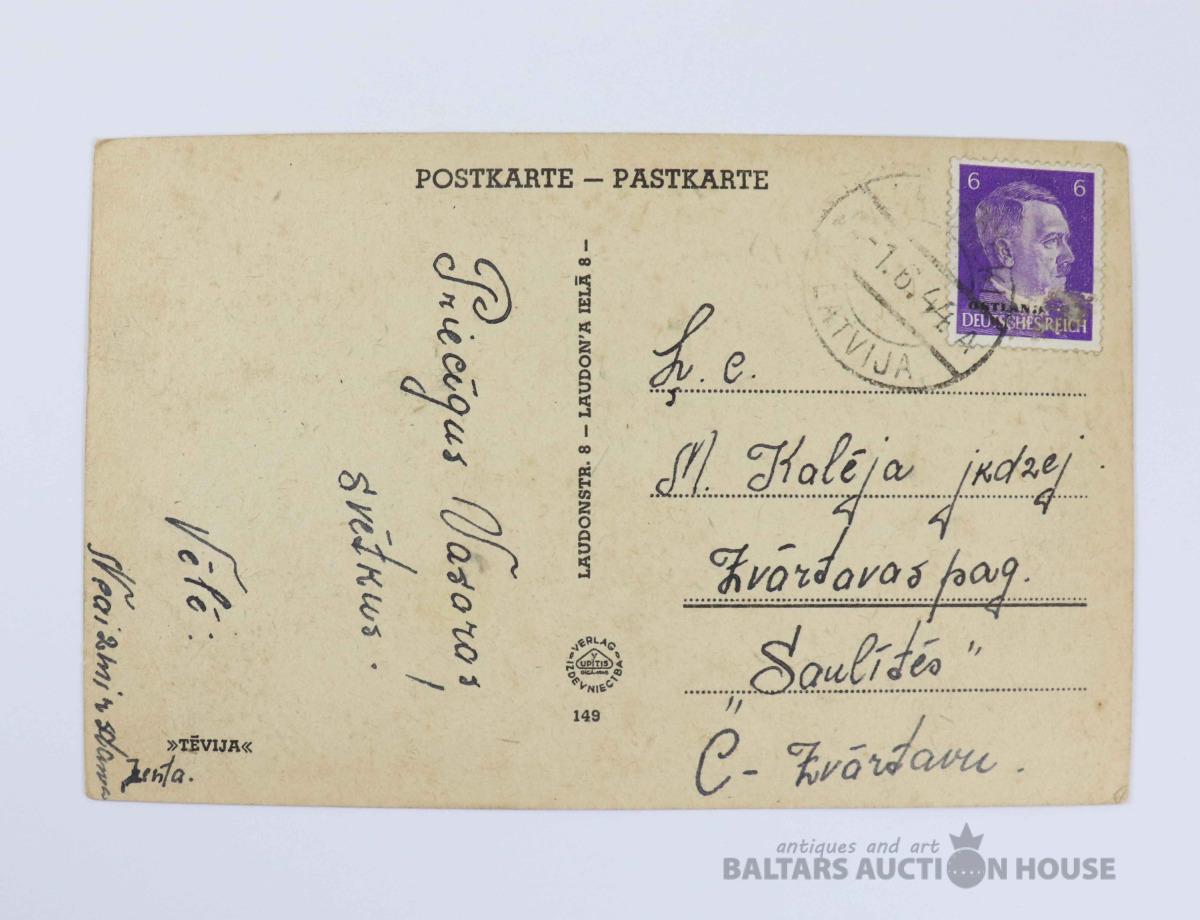 POSTKARTE – PASTKARTE
6 6
OSTLAND
DEUTSCHES REICH
-1.6.44 A
LATVIJA
Priecīgus Vasaras
svētkus.
Vēlē:
Zenta.
LAUDONSTR. 8 – LAUDON'A IELĀ 8 –
Ļ. c.
M. Kalēja jkdzej
Zvārtavas pag.
„Saulītēs"
C - Zvārtavu.
VERLAG
UPITIS
IZDEVNIECĪBA
149
»TĒVIJA«
antiques and art
BALTARS AUCTION HOUSE